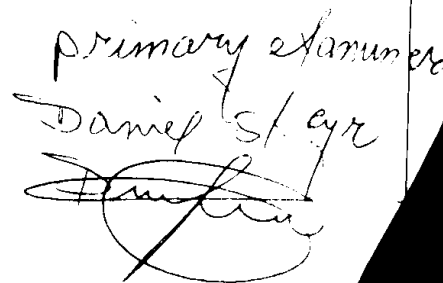 primary examiner
Daniel St. Cyr